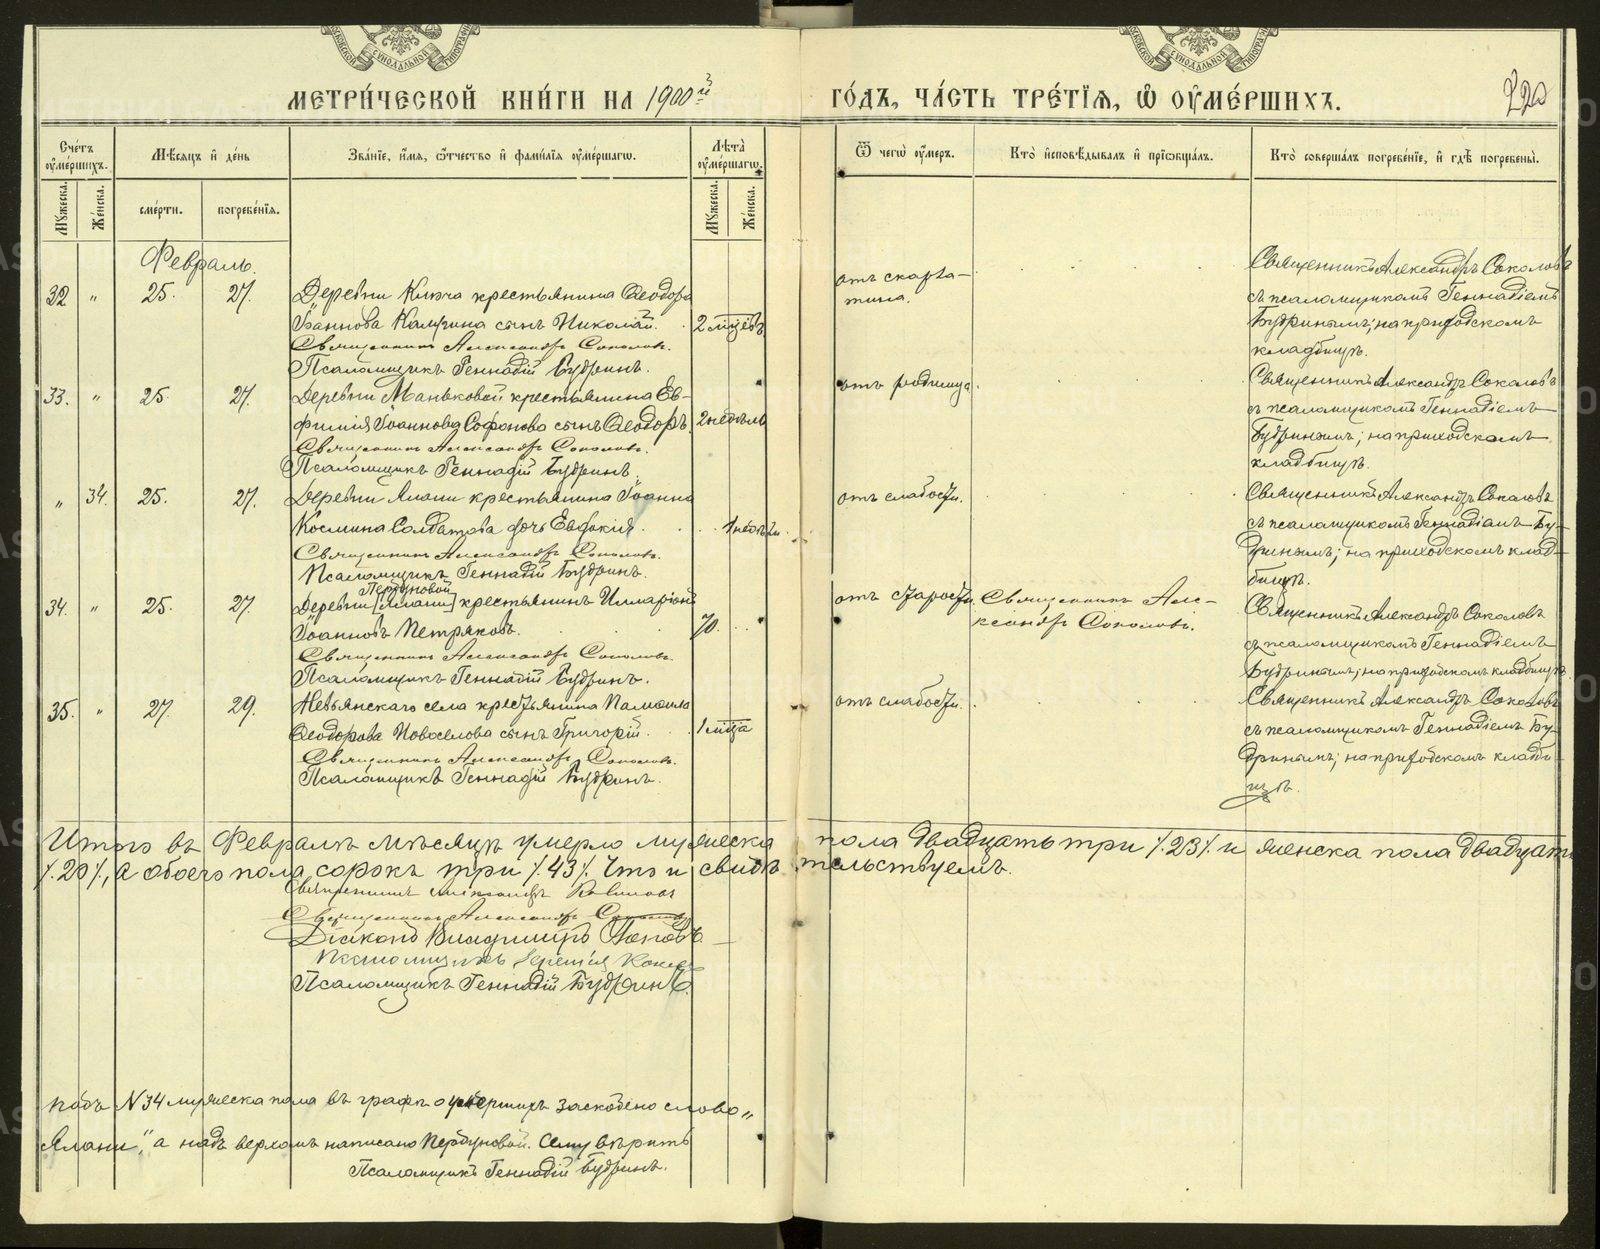 МОСКОВСКОЙ СѴНОДАЛЬНОЙ ТИПОГРАФІИ
МОСКОВСКОЙ СѴНОДАЛЬНОЙ ТИПОГРАФІИ
МЕТРИ́ЧЕСКОЙ КНИ́ГИ НА 1900й
ГО́ДЪ, ЧА́СТЬ ТРЕ́ТІѦ, Ѡ҆ ОУ҆МЕ́РШИХЪ.
220
Сче́тъ оу҆ме́ршихъ.
Мѣ́сѧцъ и҆ де́нь
Зва́нїе, и҆́мѧ, ѻ҆́тчество и҆ фами́лїѧ оу҆ме́ршагѡ.
Лѣ́та̀ оу҆ме́ршагѡ.
Ѿ чегѡ̀ оу҆́меръ.
Кто̀ и҆сповѣ́дывалъ и҆ прїѡбща́лъ.
Кто̀ соверша́лъ погребе́нїе, и҆ гдѣ̀ погребены̀.
Мꙋ́жеска. Же́нска. сме́рти. погребе́нїѧ. Мꙋ́жеска. Же́нска.
Февраль.
32 " 25. 27. Деревни Ключа крестьянина Ѳеодора
Іоаннова Калугина сынъ Николай. 2 мцевъ
Священникъ Александръ Соколовъ.
Псаломщикъ Геннадій Будринъ.
отъ скарла-
тина.
Священникъ Александръ Соколовъ
съ псаломщикомъ Геннадіемъ
Будринымъ; на приходскомъ
кладбищѣ.
33. " 25. 27. Деревни Маньковой крестьянина Ев-
фимія Іоаннова Софонова сынъ Ѳеодоръ. 2 недѣль
Священникъ Александръ Соколовъ.
Псаломщикъ Геннадій Будринъ.
отъ родимца.
Священникъ Александръ Соколовъ
съ псаломщикомъ Геннадіемъ
Будринымъ; на приходскомъ
кладбищѣ.
" 34. 25. 27. Деревни Ялани крестьянина Іоанна
Космина Солдатова дочь Евдокія. 1 недѣли.
Священникъ Александръ Соколовъ.
Псаломщикъ Геннадій Будринъ.
отъ слабости.
Священникъ Александръ Соколовъ
съ псаломщикомъ Геннадіемъ Бу-
дринымъ; на приходскомъ клад-
бищѣ.
Первуновой
34. " 25. 27. Деревни [Ялани] крестьянинъ Илларіонъ
Іоанновъ Петряковъ. 70.
Священникъ Александръ Соколовъ.
Псаломщикъ Геннадій Будринъ.
отъ старости.
Священникъ Але-
ксандръ Соколовъ.
Священникъ Александръ Соколовъ
съ псаломщикомъ Геннадіемъ
Будринымъ; на приходскомъ кладбищѣ.
35. " 27. 29. Невьянскаго села крестьянина Памфила
Ѳеодорова Новоселова сынъ Григорій. 1 мца
Священникъ Александръ Соколовъ.
Псаломщикъ Геннадій Будринъ.
отъ слабости.
Священникъ Александръ Соколовъ
съ псаломщикомъ Геннадіемъ Бу-
дринымъ; на приходскомъ кладби-
щѣ.
Итого въ Февралѣ мѣсяцѣ умерло мужеска пола двадцать три /.23/. и женска пола двадцать
/.20/., а обоего пола сорокъ три /.43/. Что и свидѣтельствуемъ.
Священникъ Александръ
Священникъ Александръ Соколовъ
Діаконъ Владимиръ Поповъ
Псаломщикъ
Псаломщикъ Геннадій Будринъ.
подъ N 34 мужеска пола въ графѣ о умершихъ заскоблено слово „
Ялани", а надъ верхомъ написано Первуновой. Сему вѣрить
Псаломщикъ Геннадій Будринъ.